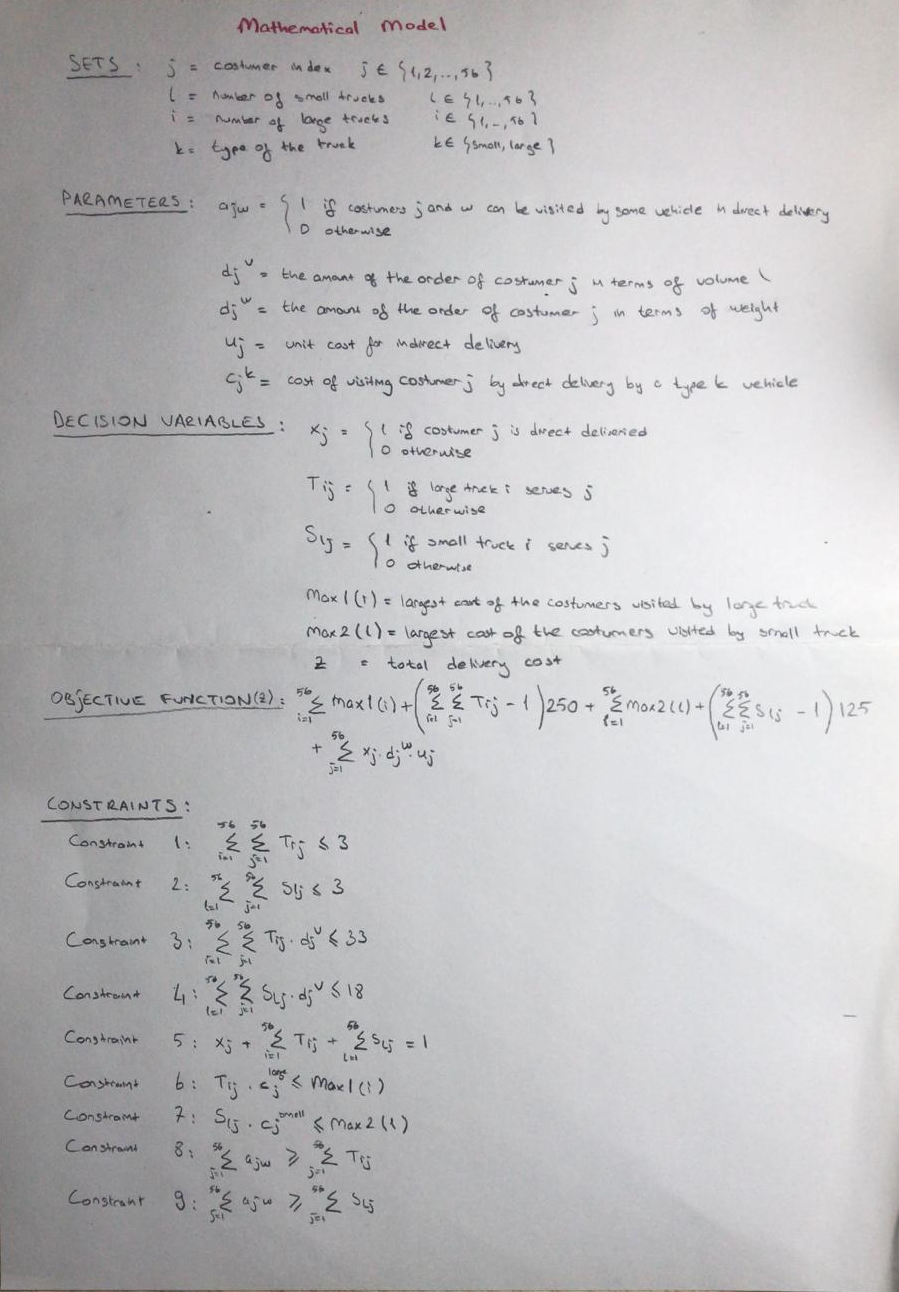 Mathematical Model
SETS : j = costumer index j ∈ {1,2,..,56}
l = number of small trucks l ∈ {1,..,56}
i = number of large trucks i ∈ {1,..,56}
k = type of the truck k ∈ {small, large}
PARAMETERS : ajw = { 1 if costumers j and w can be visited by same vehicle in direct delivery
0 otherwise
dj^v = the amount of the order of costumer j in terms of volume
dj^w = the amount of the order of costumer j in terms of weight
uj = unit cost for indirect delivery
cj^k = cost of visiting costumer j by direct delivery by a type k vehicle
DECISION VARIABLES : xj = { 1 if costumer j is direct delivered
0 otherwise
Tij = { 1 if large truck i serves j
0 otherwise
Slj = { 1 if small truck i serves j
0 otherwise
Max1(i) = largest cost of the costumers visited by large truck
Max2(l) = largest cost of the costumers visited by small truck
Z = total delivery cost
OBJECTIVE FUNCTION(Z) : 56 Σ i=1 max1(i) + ( 56 Σ i=1 56 Σ j=1 Tij - 1 ) 250 + 56 Σ l=1 max2(l) + ( 56 Σ l=1 56 Σ j=1 Slj - 1 ) 125
+ 56 Σ j=1 xj . dj^w . uj
CONSTRAINTS :
Constraint 1: 56 Σ i=1 56 Σ j=1 Tij ≤ 3
Constraint 2: 56 Σ l=1 56 Σ j=1 Slj ≤ 3
Constraint 3: 56 Σ i=1 56 Σ j=1 Tij . dj^v ≤ 33
Constraint 4: 56 Σ l=1 56 Σ j=1 Slj . dj^v ≤ 18
Constraint 5: xj + 56 Σ i=1 Tij + 56 Σ l=1 Slj = 1
Constraint 6: Tij . cj^large ≤ Max1(i)
Constraint 7: Slj . cj^small ≤ Max2(l)
Constraint 8: 56 Σ j=1 ajw ≥ 56 Σ j=1 Tij
Constraint 9: 56 Σ j=1 ajw ≥ 56 Σ j=1 Slj